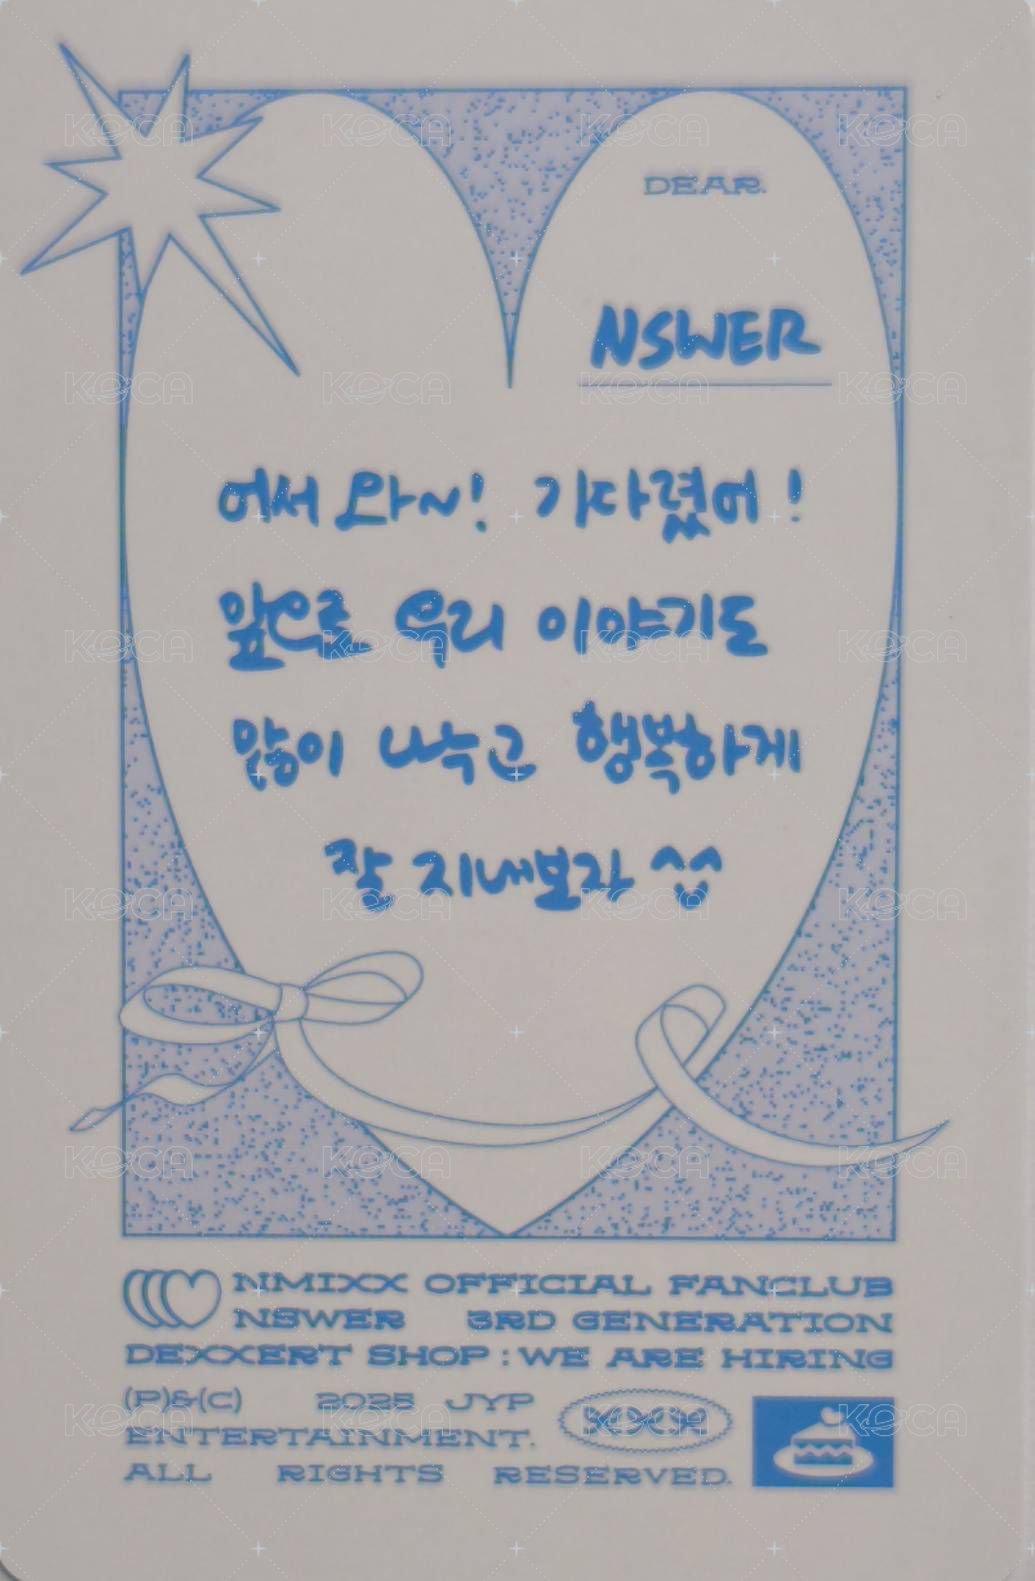 DEAR.
NSWER
어서 와~! 기다렸어!
앞으로 우리 이야기도
많이 나누고 행복하게
잘 지내보자 ^^
NMIXX OFFICIAL FANCLUB
NSWER 3RD GENERATION
DEXXERT SHOP : WE ARE HIRING
(P)&(C) 2025 JYP
ENTERTAINMENT.
ALL RIGHTS RESERVED.
KOCA